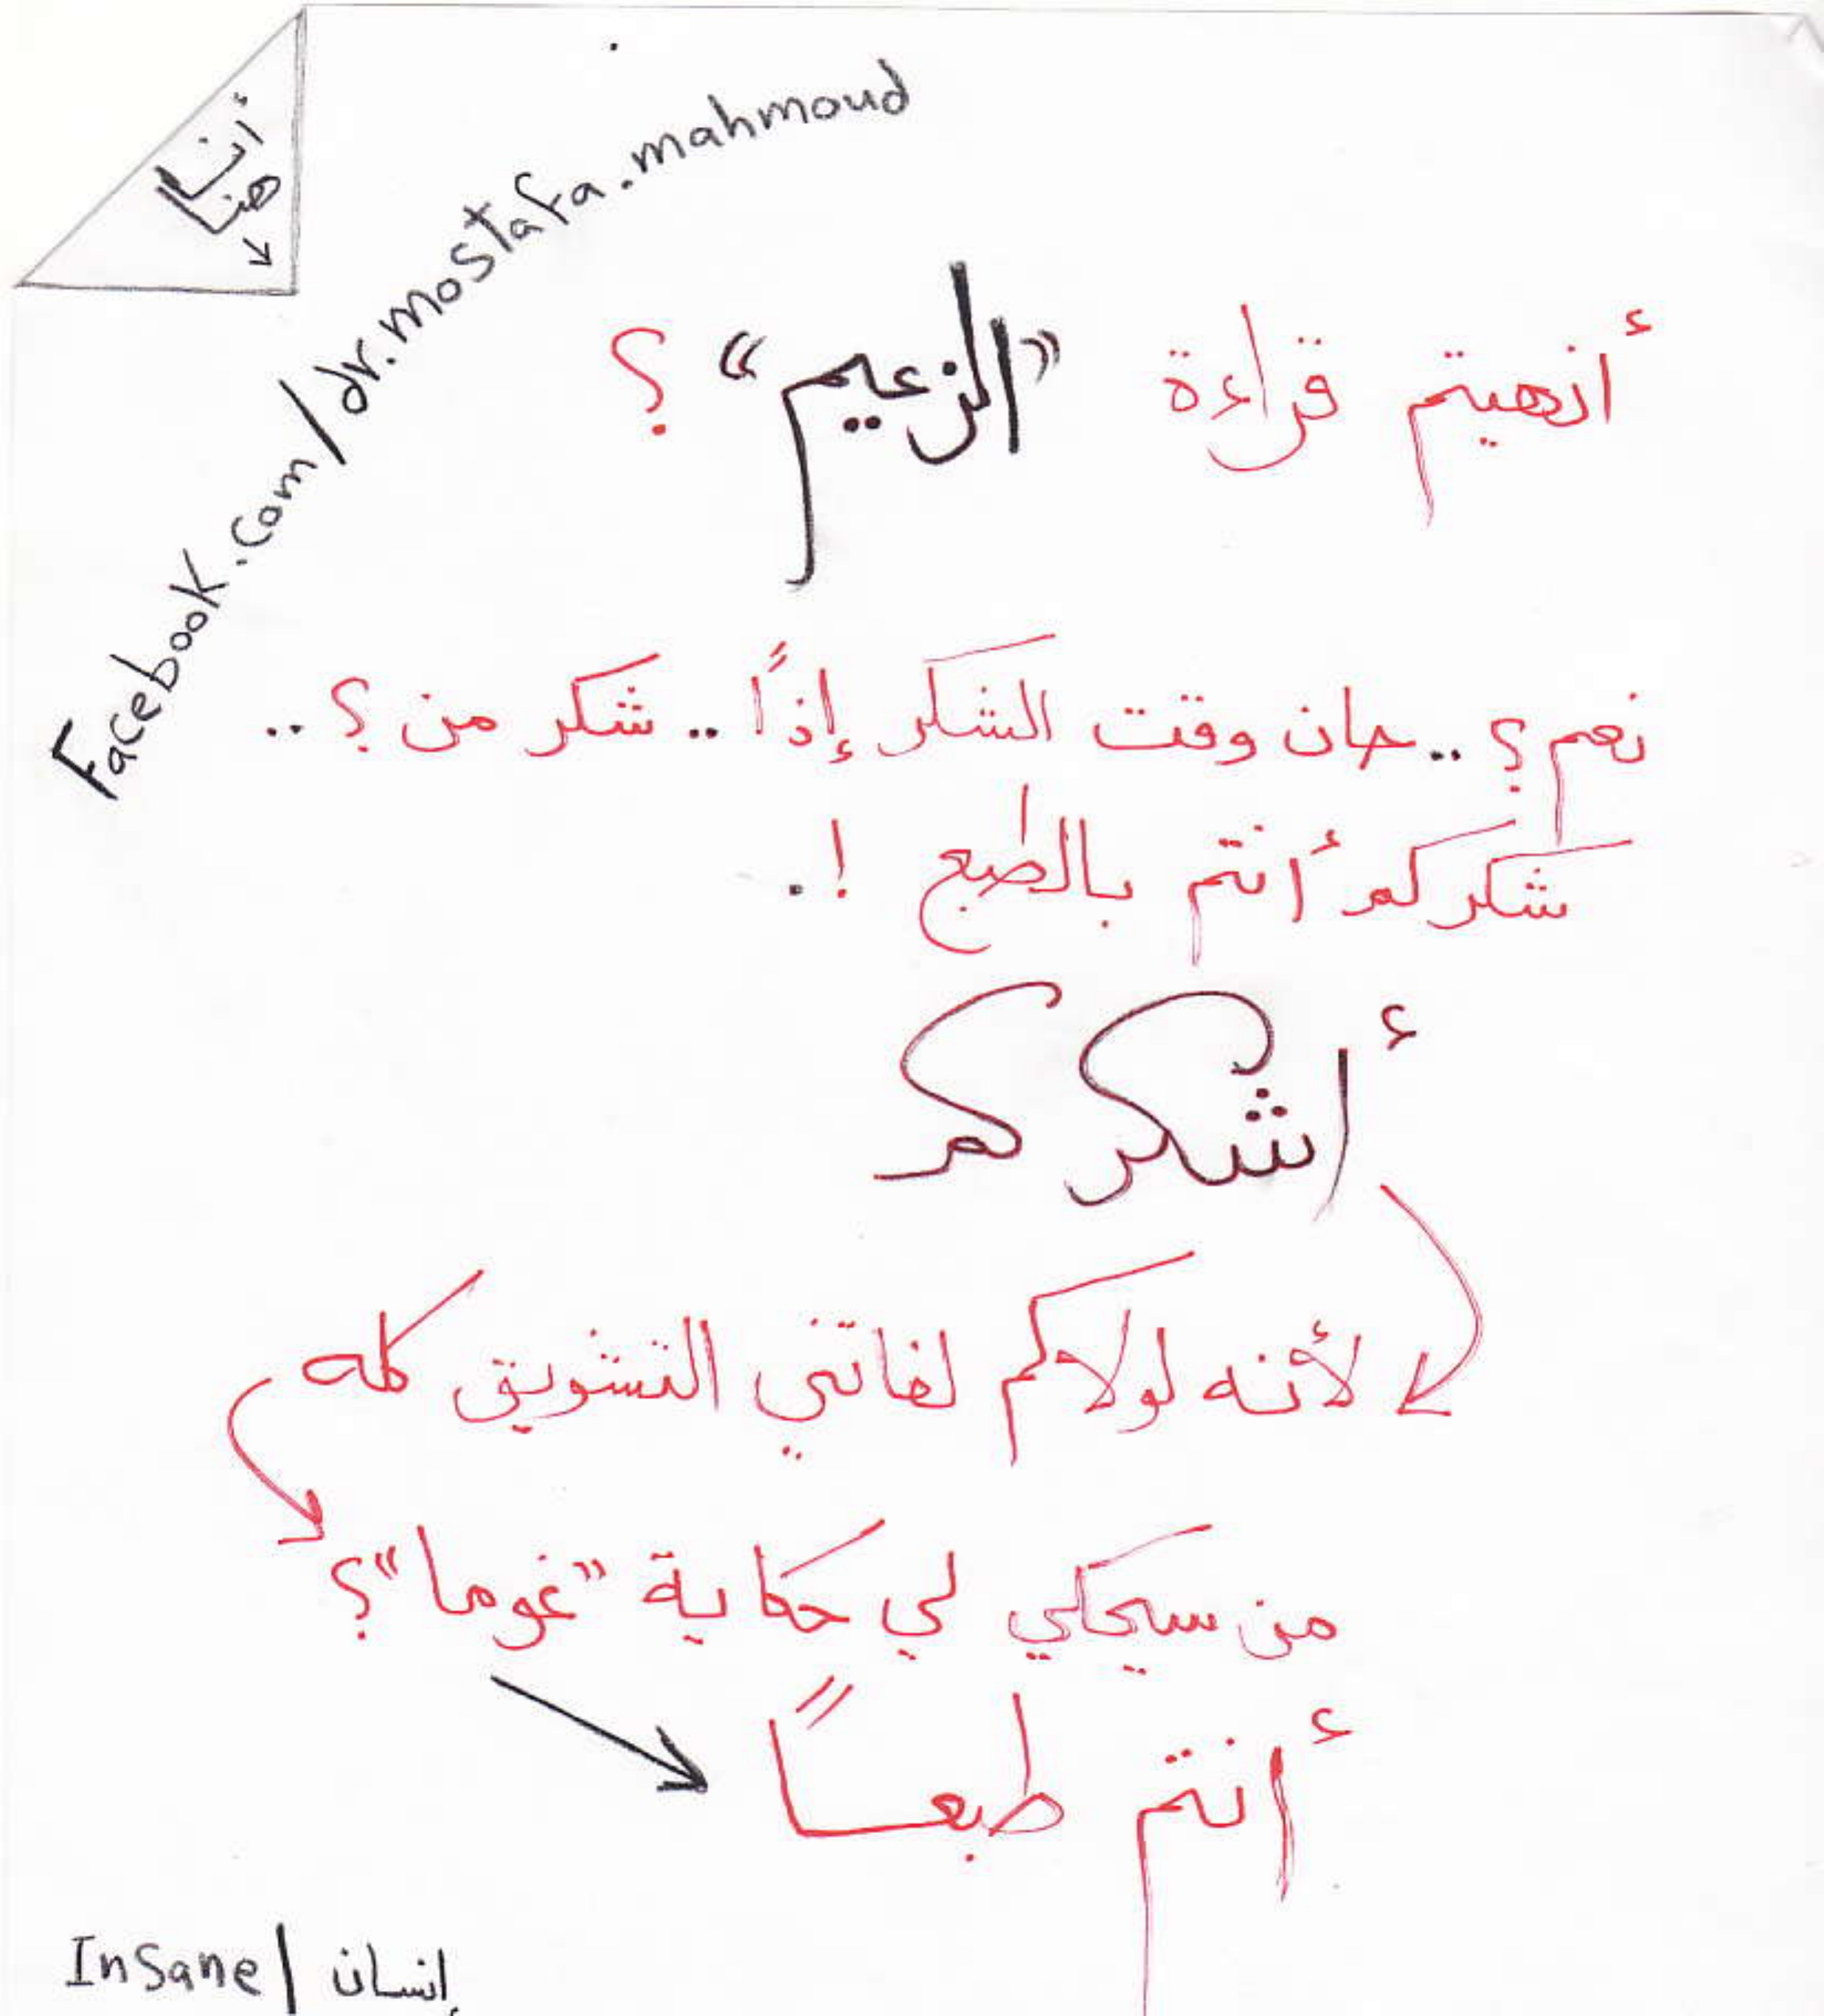 أنا
هنا
Facebook.com/dr.mostafa.mahmoud
أنهيتم قراءة "الزعيم" ؟
نعم ؟ .. حان وقت الشكر إذاً .. شكر من ؟ ..
شكركم أنتم بالطبع ! .
أشكركم
لأنه لولاكم لفاتني التشويق كله
من سيحكي لي حكاية "غوما" ؟
أنتم طبعاً
InSane | إنسان